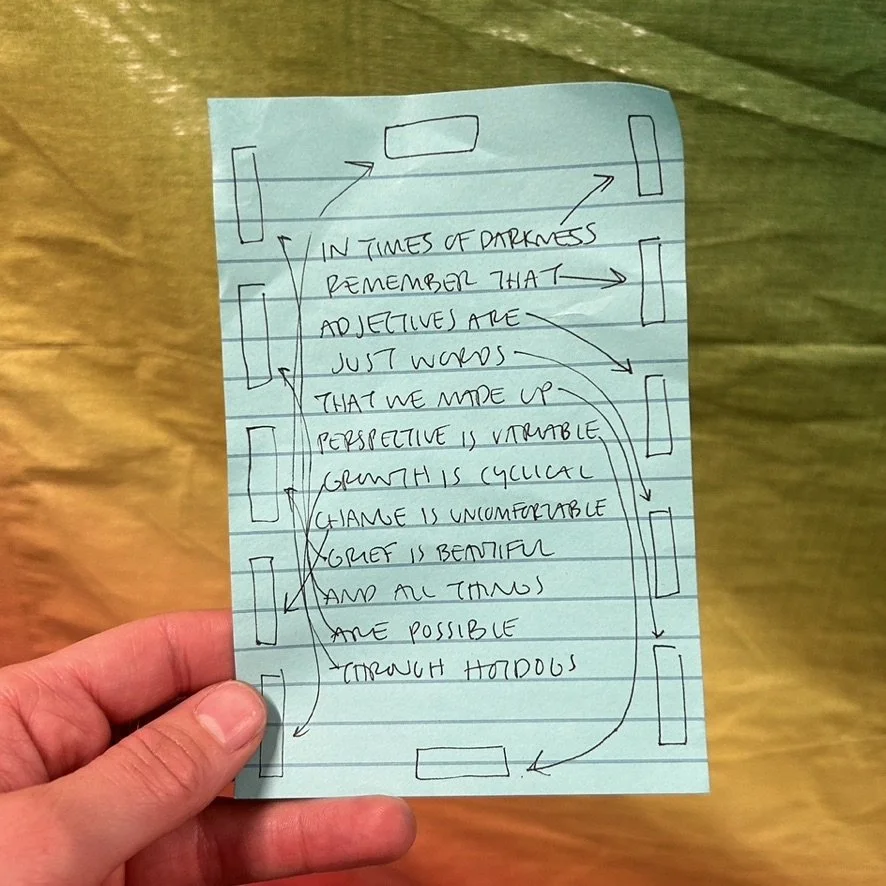 IN TIMES OF DARKNESS
REMEMBER THAT
ADJECTIVES ARE
JUST WORDS
THAT WE MADE UP
PERSPECTIVE IS VARIABLE
GROWTH IS CYCLICAL
CHANGE IS UNCOMFORTABLE
GRIEF IS BEAUTIFUL
AND ALL THINGS
ARE POSSIBLE
THROUGH HOTDOGS